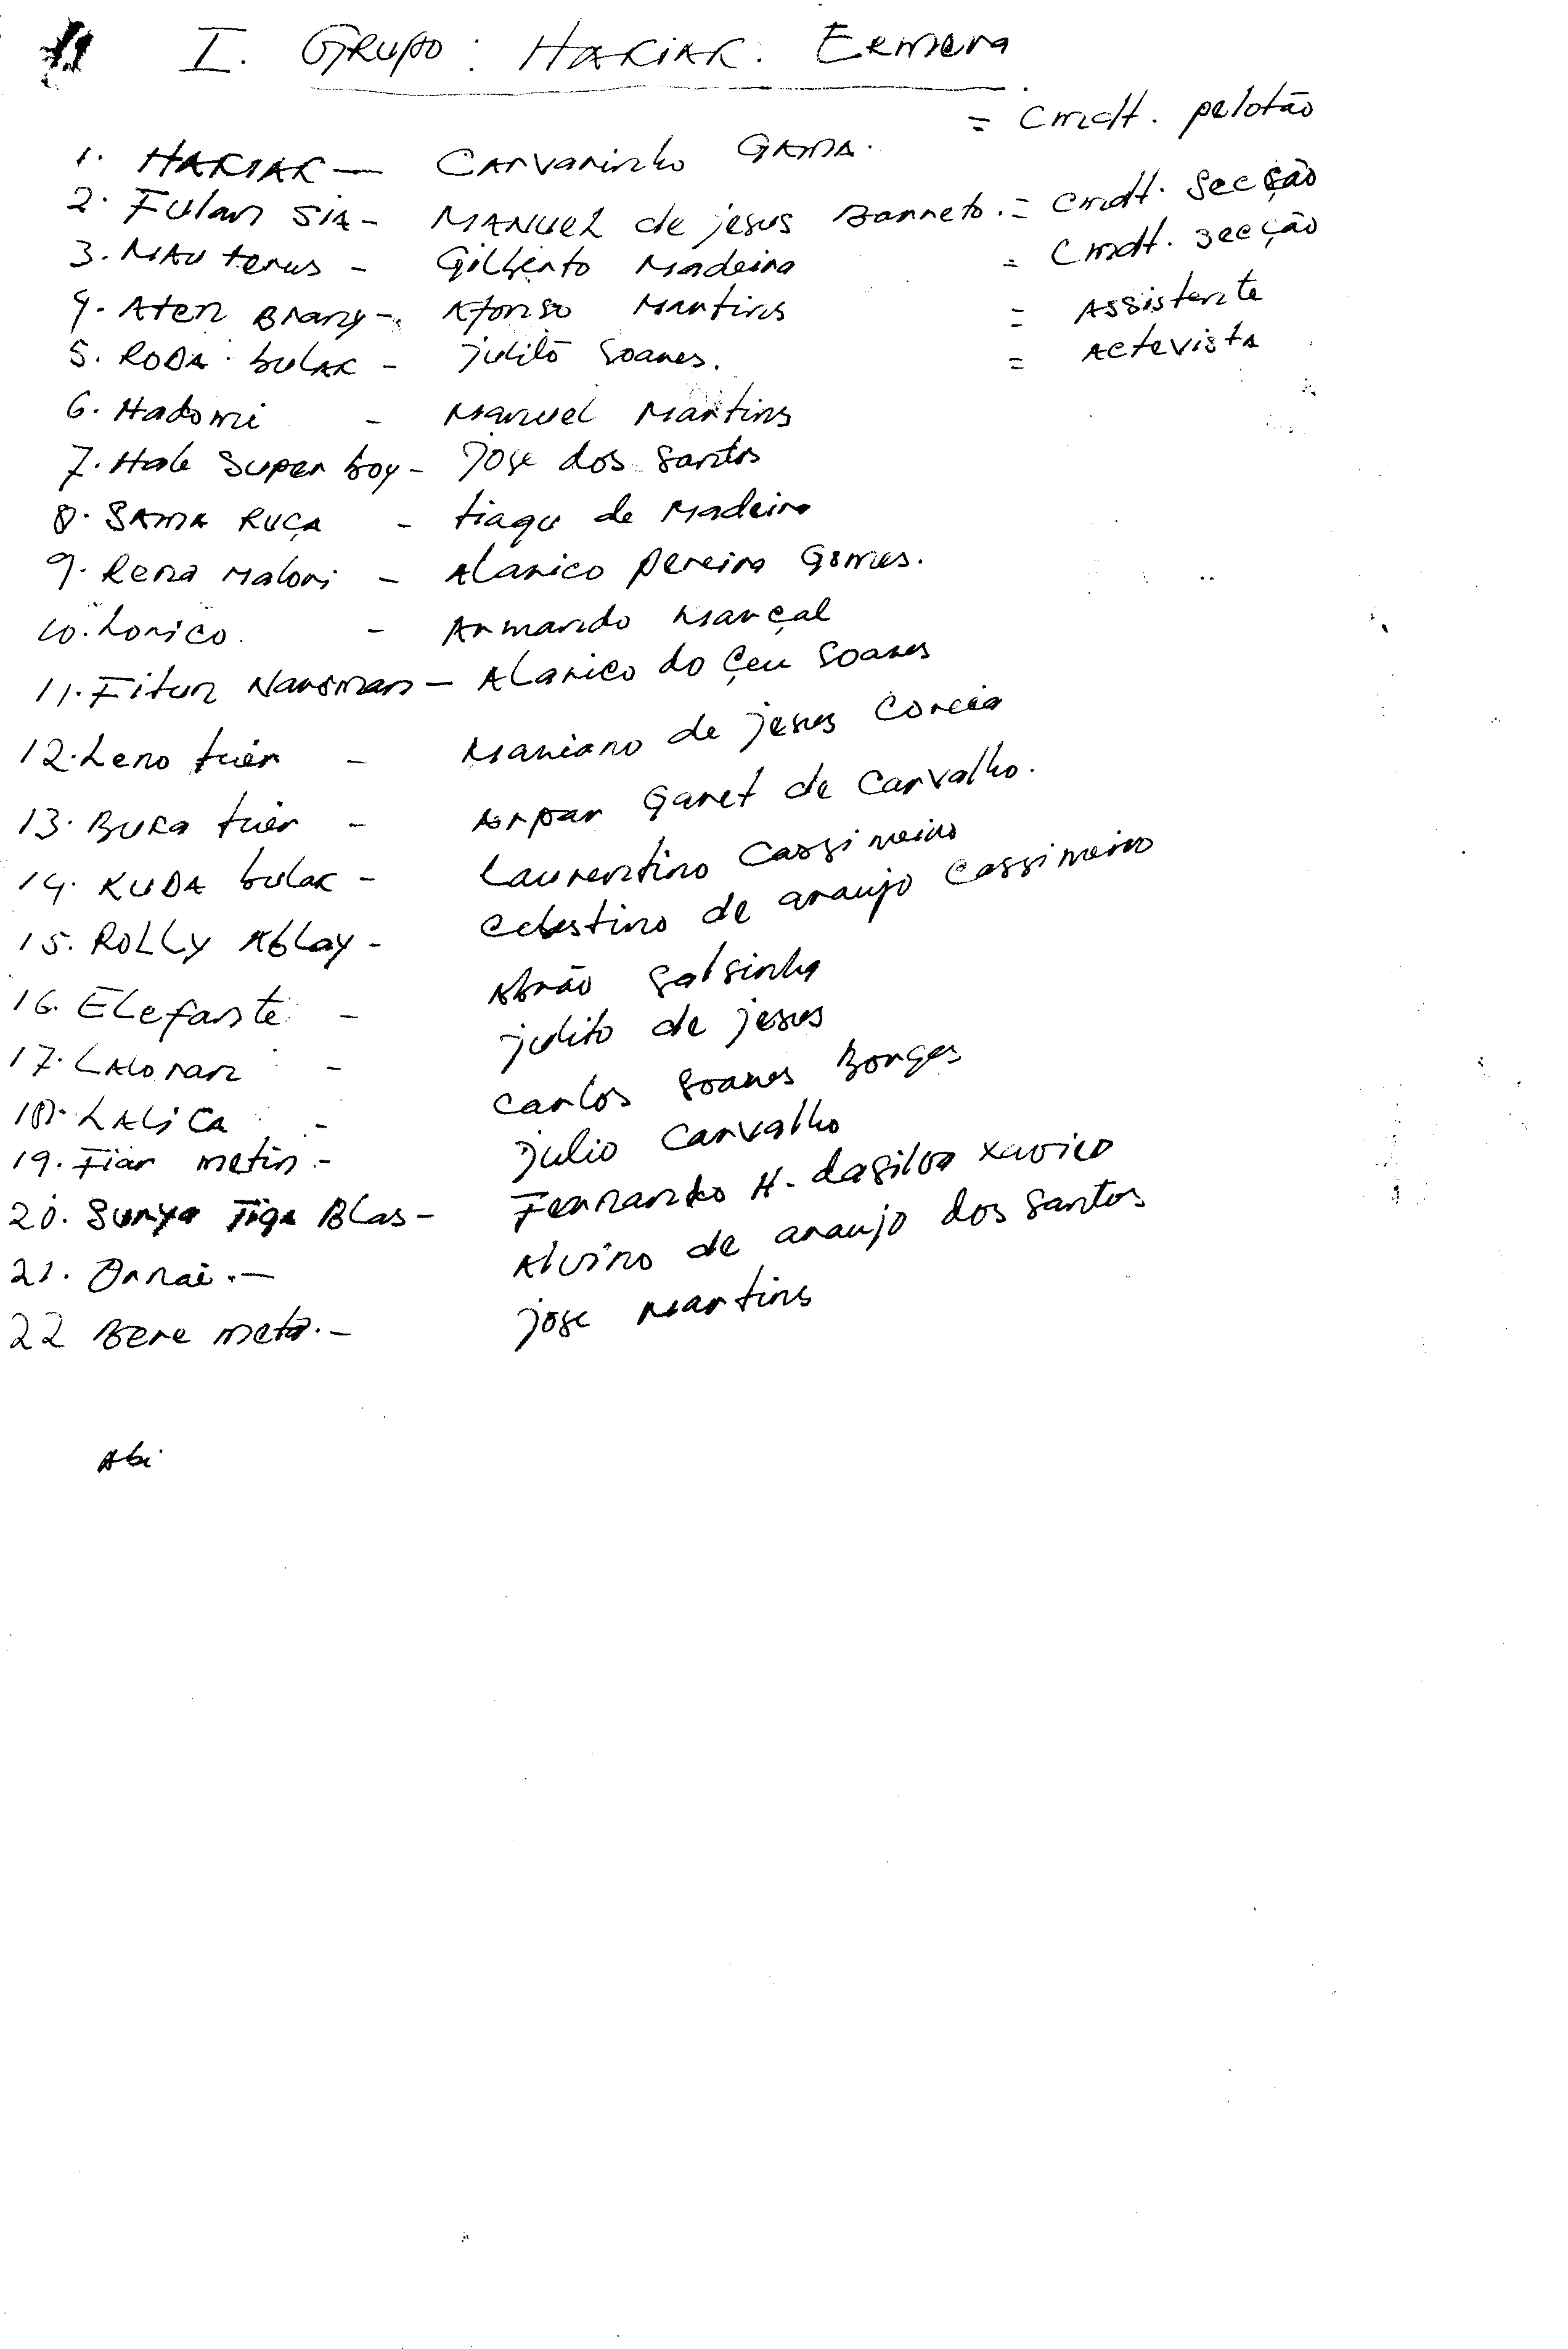 I. Grupo: HAKIAK. Ermera
1. HAKIAK — Carvarinho GAMA. = Cmdt. pelotão
2. Fulan SIA - MANUEL de jesus Barreto. = Cmdt. Secção
3. MAU terus - Gilberto Madeira = Cmdt. Secção
4. Aten Brany - Afonso Martins = Assistente
5. RODA bulak - julito Soares. = Actevista
6. Hadomi - Manuel Martins
7. Hale Super boy - jose dos Santos
8. SAMA RUÇA - tiagu de Madeira
9. Rena Malori - Alarico pereira Gomes.
10. Lorico. - Armando Marçal
11. Fitun Naroman - Alarico do Çeu Soares
12. Leno tuir - Mariano de jesus Correia
13. BUKA tuir - Arpar Garet de Carvalho.
14. KUDA bulak - Laurentino Cassimeiro
15. ROLLY Ablay - Celestino de araujo Cassimeiro
16. Elefante - Abrão Salsinha
17. LALORAN - julito de jesus
18. LALICA - Carlos Soares Borges
19. Fiar metin - julio Carvalho
20. Surya Tiga Blas - Fernando H. dasilva Xavier
21. Ornai. — Alvino de araujo dos Santos
22 Bere meta. - jose Martins
Abi